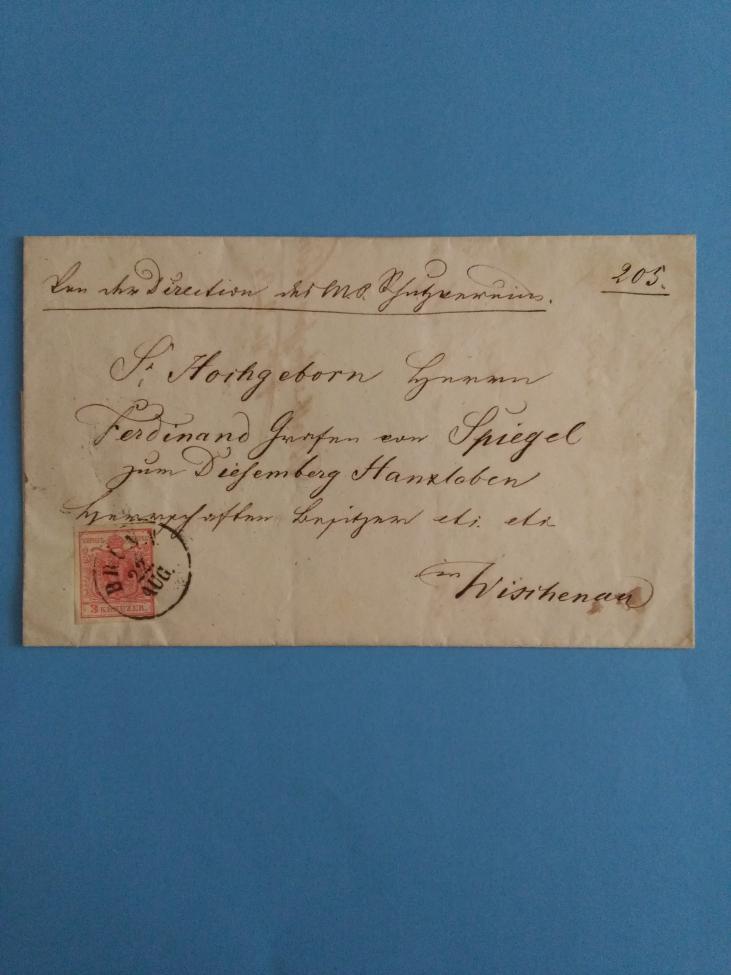 Von der Direction des M. S. Schutzvereins.
205.
Sr Hochgeborn Herrn
Ferdinand Grafen von Spiegel
zum Diesemberg Hanxleben
Herrschaften Besitzer etc. etc.
in Wischenau
BRÜNN
22
AUG.
3 KREUZER.